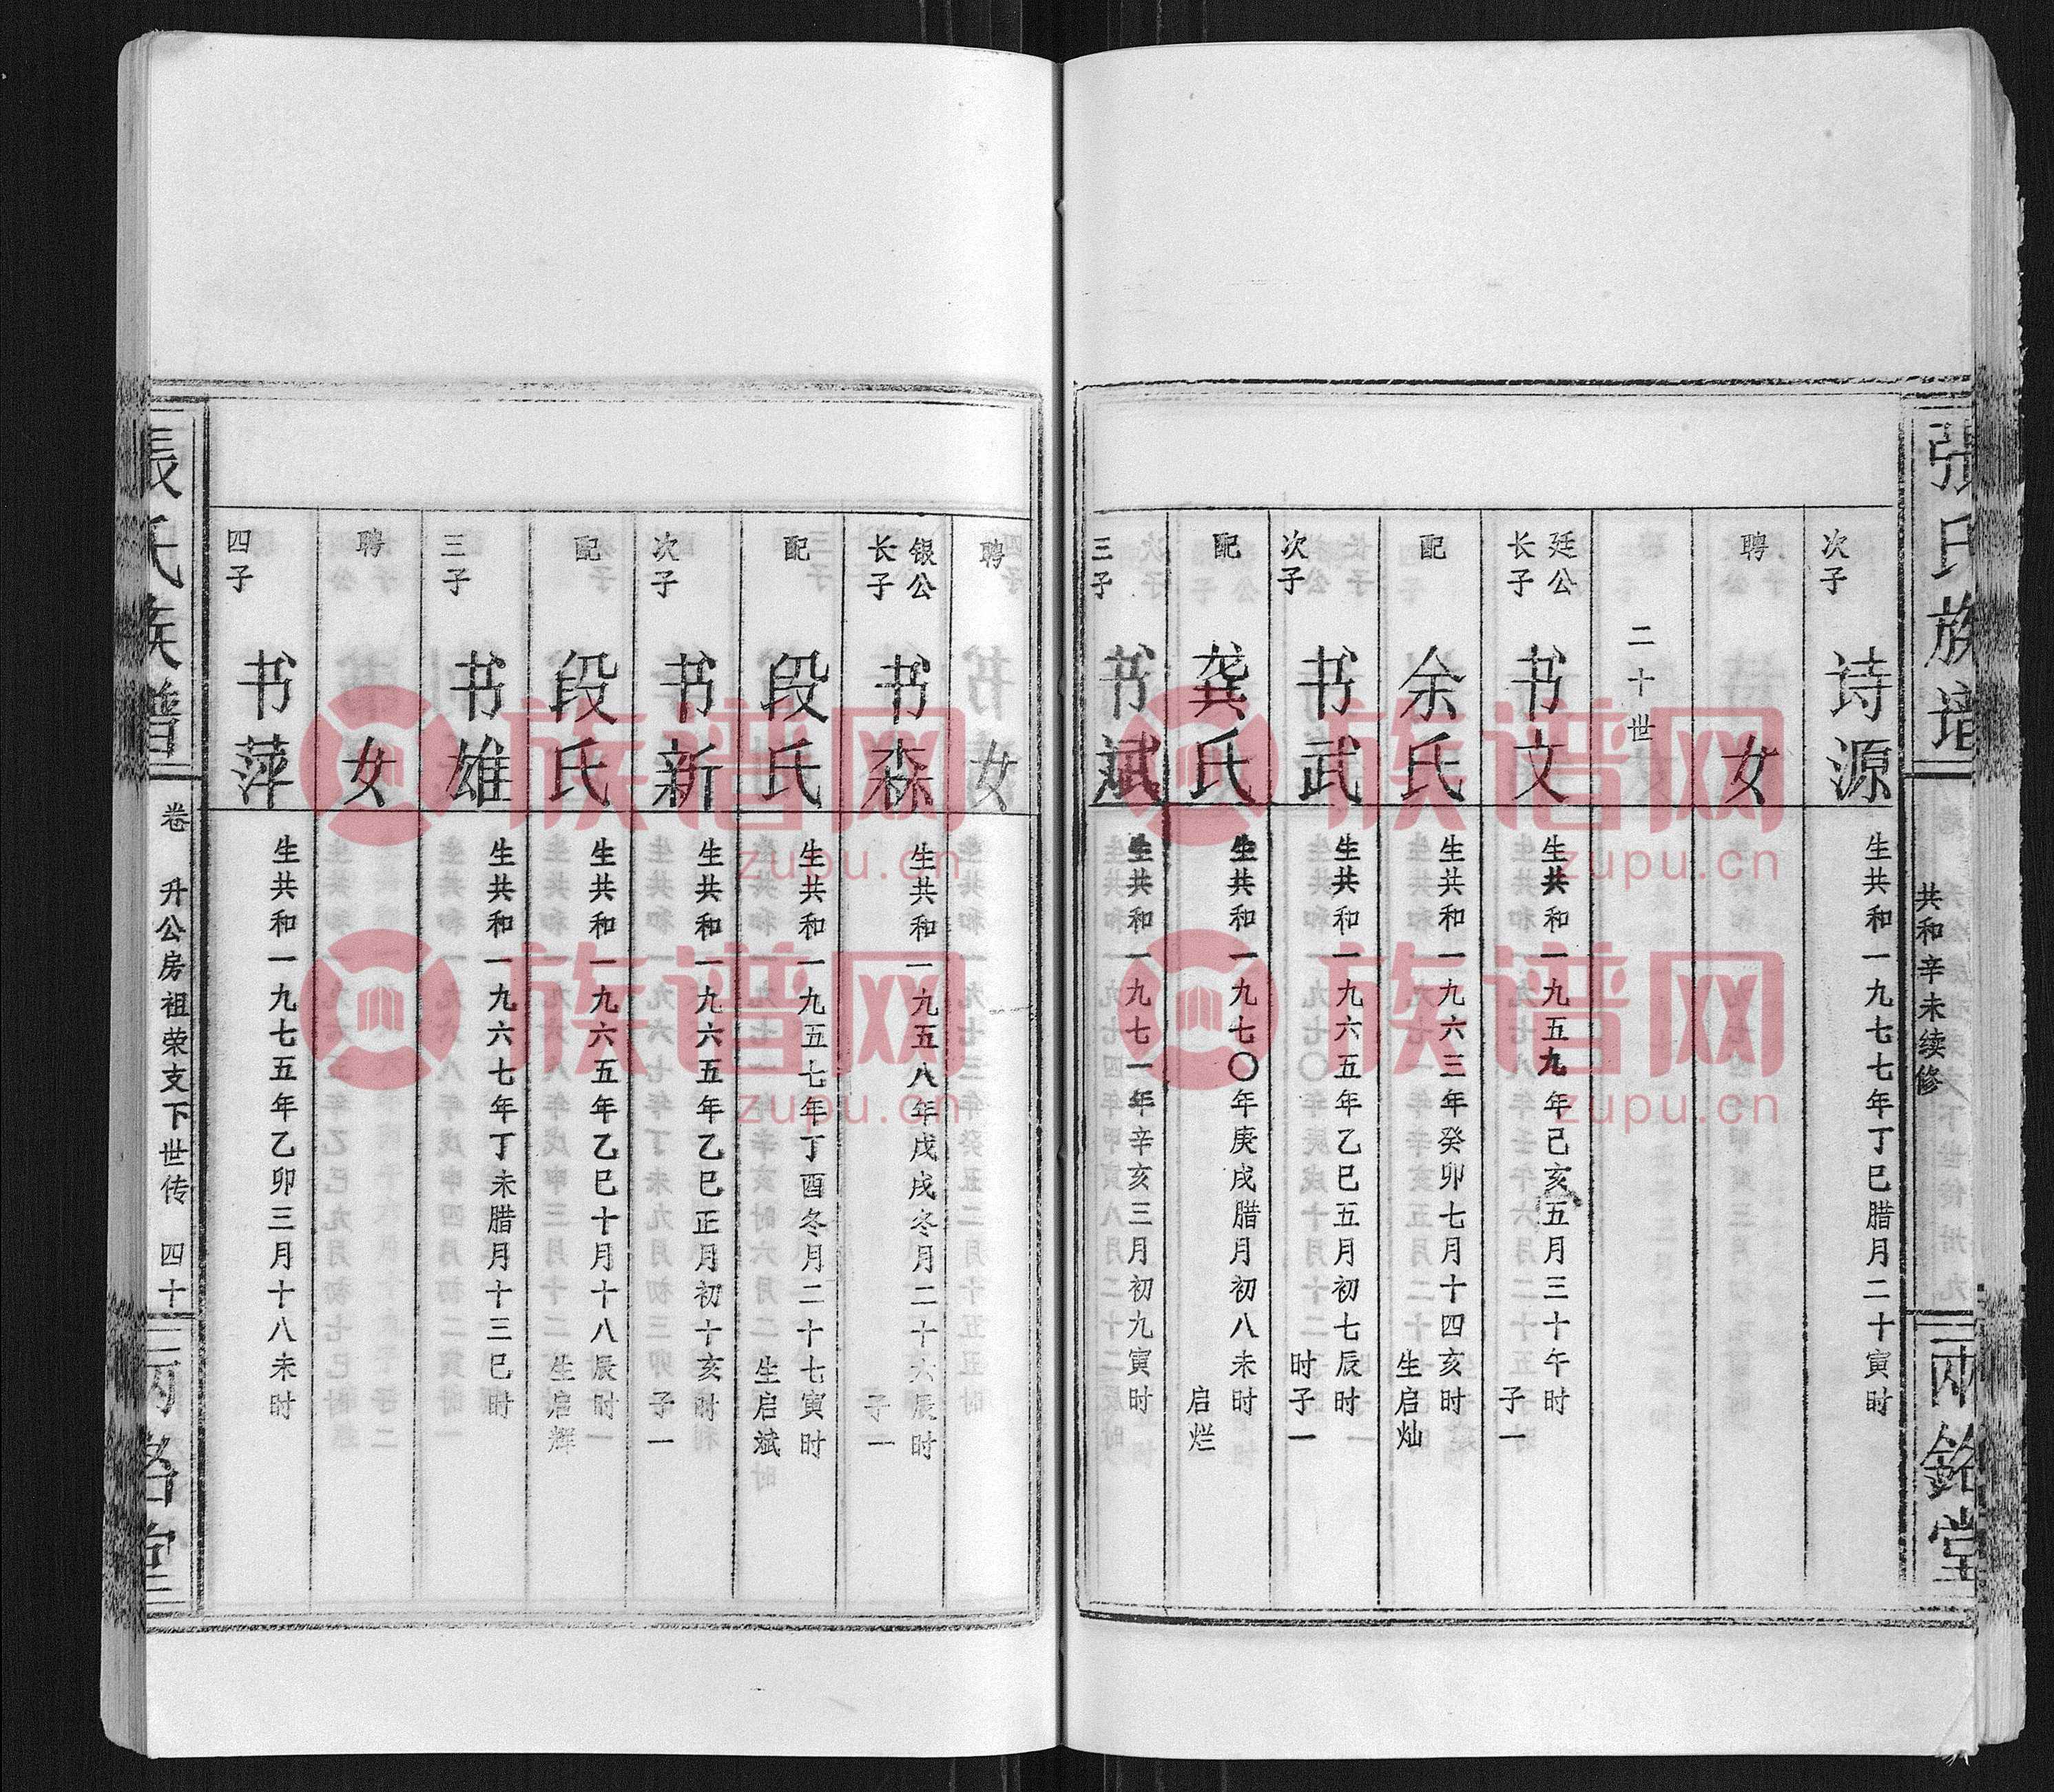 张氏族谱
共和辛未续修
两銘堂
次子
诗源
生共和一九七七年丁巳腊月二十寅时
聘
女
二十世
廷公
长子
书文
生共和一九五九年己亥五月三十午时
子一
配
余氏
生共和一九六三年癸卯七月十四亥时
生启灿
次子
书武
生共和一九六五年乙巳五月初七辰时
时子一
配
龚氏
生共和一九七〇年庚戌腊月初八未时
启烂
三子
书斌
生共和一九七一年辛亥三月初九寅时
聘
女
银公
长子
书森
生共和一九五八年戊戌冬月二十六辰时
子一
配
段氏
生共和一九五七年丁酉冬月二十七寅时
生启斌
次子
书新
生共和一九六五年乙巳正月初十亥时
子一
配
段氏
生共和一九六五年乙巳十月十八辰时
生启辉
三子
书雄
生共和一九六七年丁未腊月十三巳时
聘
女
四子
书萍
生共和一九七五年乙卯三月十八未时
張氏族譜
卷 升公房祖荣支下世传 四十
两銘堂
族谱网
zupu.cn
族谱网
zupu.cn
族谱网
zupu.cn
族谱网
zupu.cn